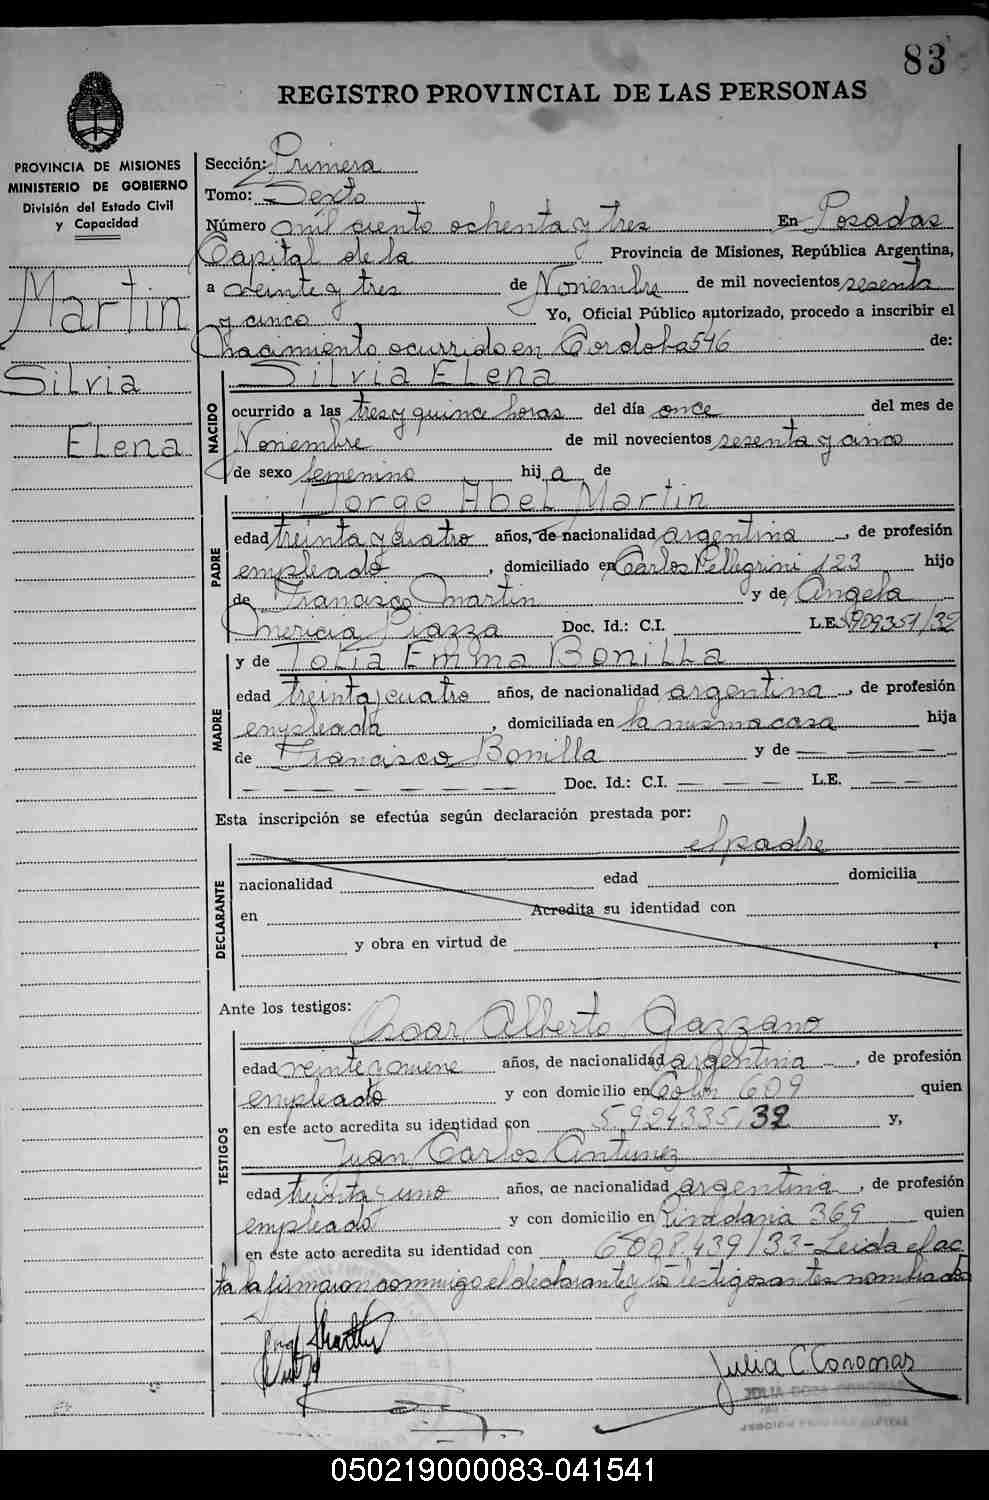 83
REGISTRO PROVINCIAL DE LAS PERSONAS
PROVINCIA DE MISIONES
MINISTERIO DE GOBIERNO
División del Estado Civil
y Capacidad
Martin
Silvia
Elena
Sección: Primera
Tomo: Sexto
Número mil ciento ochenta y tres En Posadas
Capital de la Provincia de Misiones, República Argentina,
a veinte y tres de Noviembre de mil novecientos sesenta
y cinco Yo, Oficial Público autorizado, procedo a inscribir el
nacimiento ocurrido en Cordoba 546 de:
NACIDO
Silvia Elena
ocurrido a las tres y quince horas del día once del mes de
Noviembre de mil novecientos sesenta y cinco
de sexo femenino hija de
PADRE
Jorge Abel Martin
edad treinta y cuatro años, de nacionalidad argentina, de profesión
empleado, domiciliado en Carlos Pellegrini 123 hijo
de Francisco Martin y de Angela
Americia Piazza Doc. Id.: C.I. L.E. 5909351/32
MADRE
y de Tolia Emma Bonilla
edad treinta y cuatro años, de nacionalidad argentina, de profesión
empleada, domiciliada en la misma casa hija
de Francisco Bonilla y de
Doc. Id.: C.I. L.E.
Esta inscripción se efectúa según declaración prestada por:
el padre
DECLARANTE
nacionalidad edad domicilia
en Acredita su identidad con
y obra en virtud de
Ante los testigos:
TESTIGOS
Oscar Alberto Gazzano
edad veinte y nueve años, de nacionalidad argentina, de profesión
empleado y con domicilio en Colon 609 quien
en este acto acredita su identidad con 5.924335/32 y,
Juan Carlos Antunez
edad treinta y uno años, de nacionalidad argentina, de profesión
empleado y con domicilio en Rivadavia 369 quien
en este acto acredita su identidad con 6.028.439/33- Leida el ac
ta la firmaron conmigo el declarante y los testigos antes nombrados
Julia C Coronas
050219000083-041541